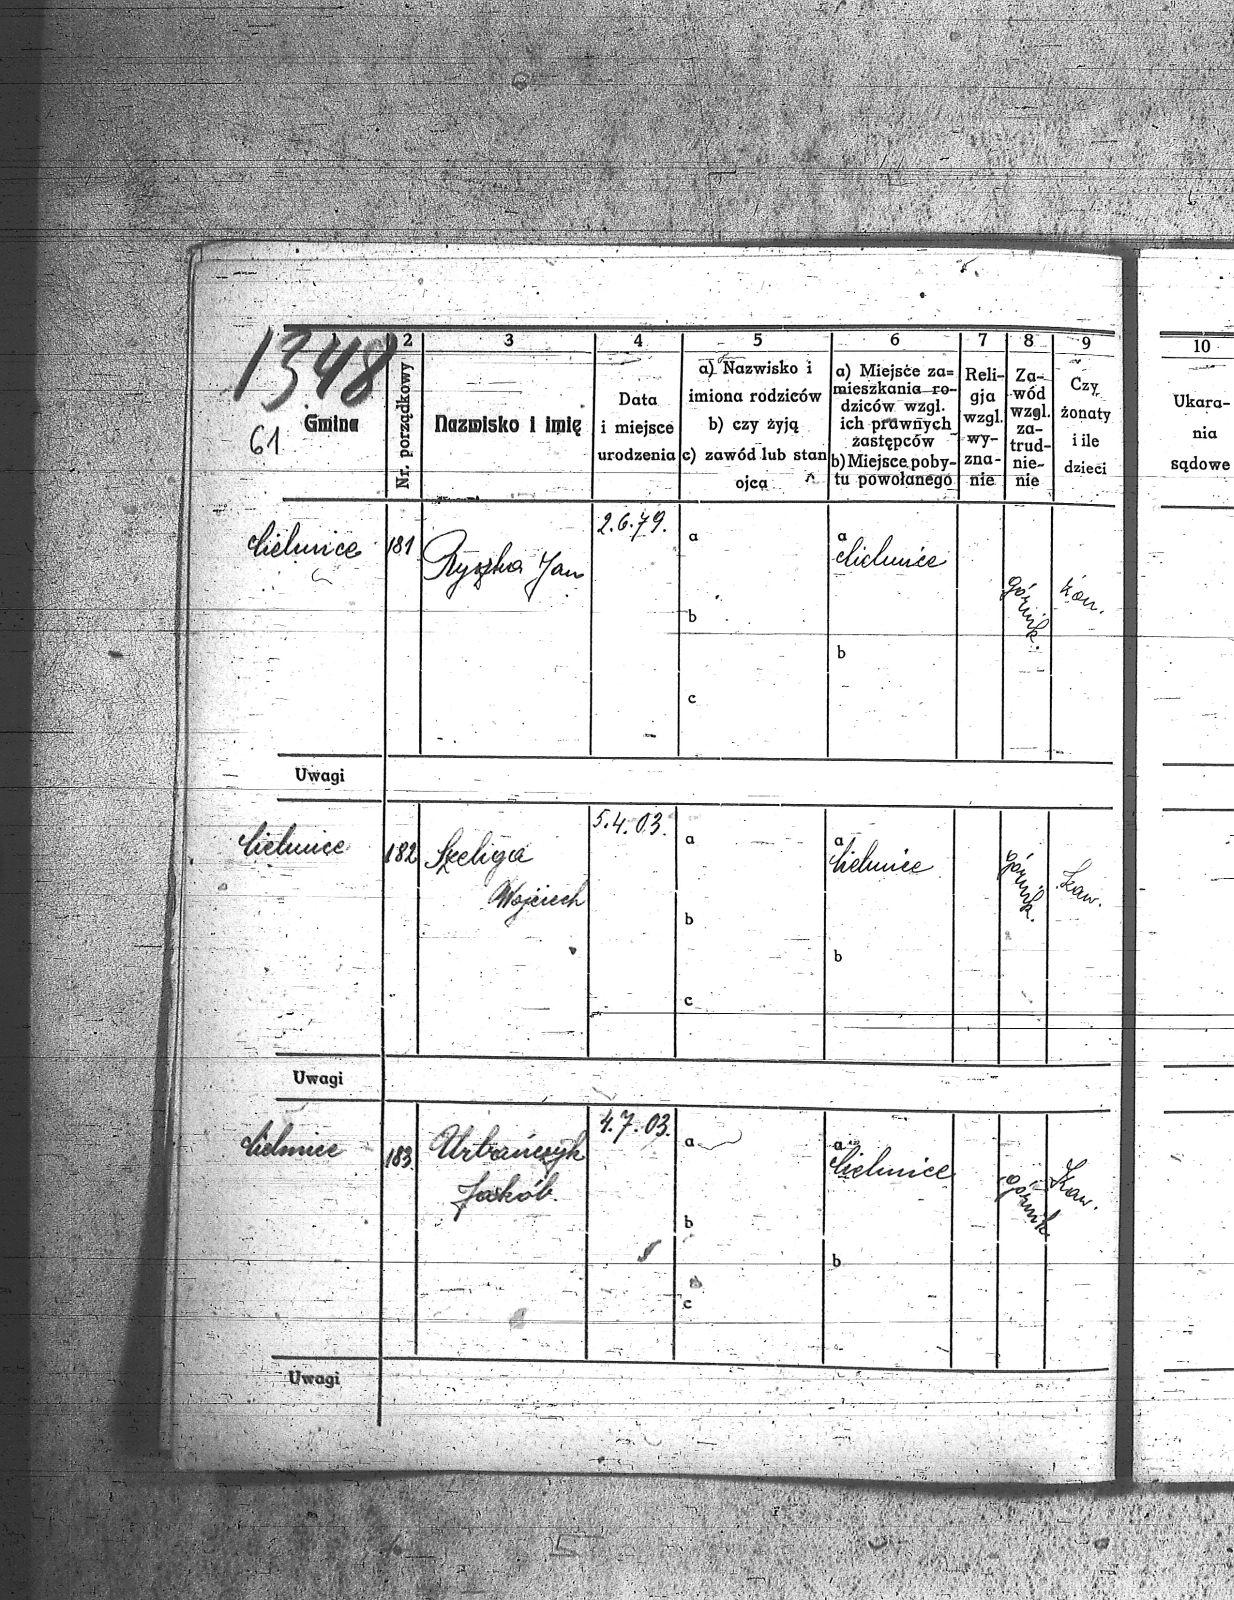 1348
61
Gmina
2
Nr. porządkowy
3
Nazwisko i imię
4
Data
i miejsce
urodzenia
5
a) Nazwisko i
imiona rodziców
b) czy żyją
c) zawód lub stan
ojca
6
a) Miejsce za=
mieszkania ro-
dziców wzgl.
ich prawnych
zastępców
b) Miejsce poby-
tu powołanego
7
Reli-
gja
wzgl.
wy-
zna-
nie
8
Za-
wód
wzgl.
za-
trud-
nie-
nie
9
Czy
żonaty
i ile
dzieci
10
Ukara-
nia
sądowe
Cielmice
181
Ryszka Jan
2.6.79.
a
b
c
a
Cielmice
b
górnik.
Uwagi
Cielmice
182
Szeliga
Wojciech
5.4.03.
a
b
c
a
Cielmice
b
górnik.
Uwagi
Cielmice
183
Urbańczyk
Jakób
4.7.03.
a
b
c
a
Cielmice
b
górnik
Uwagi